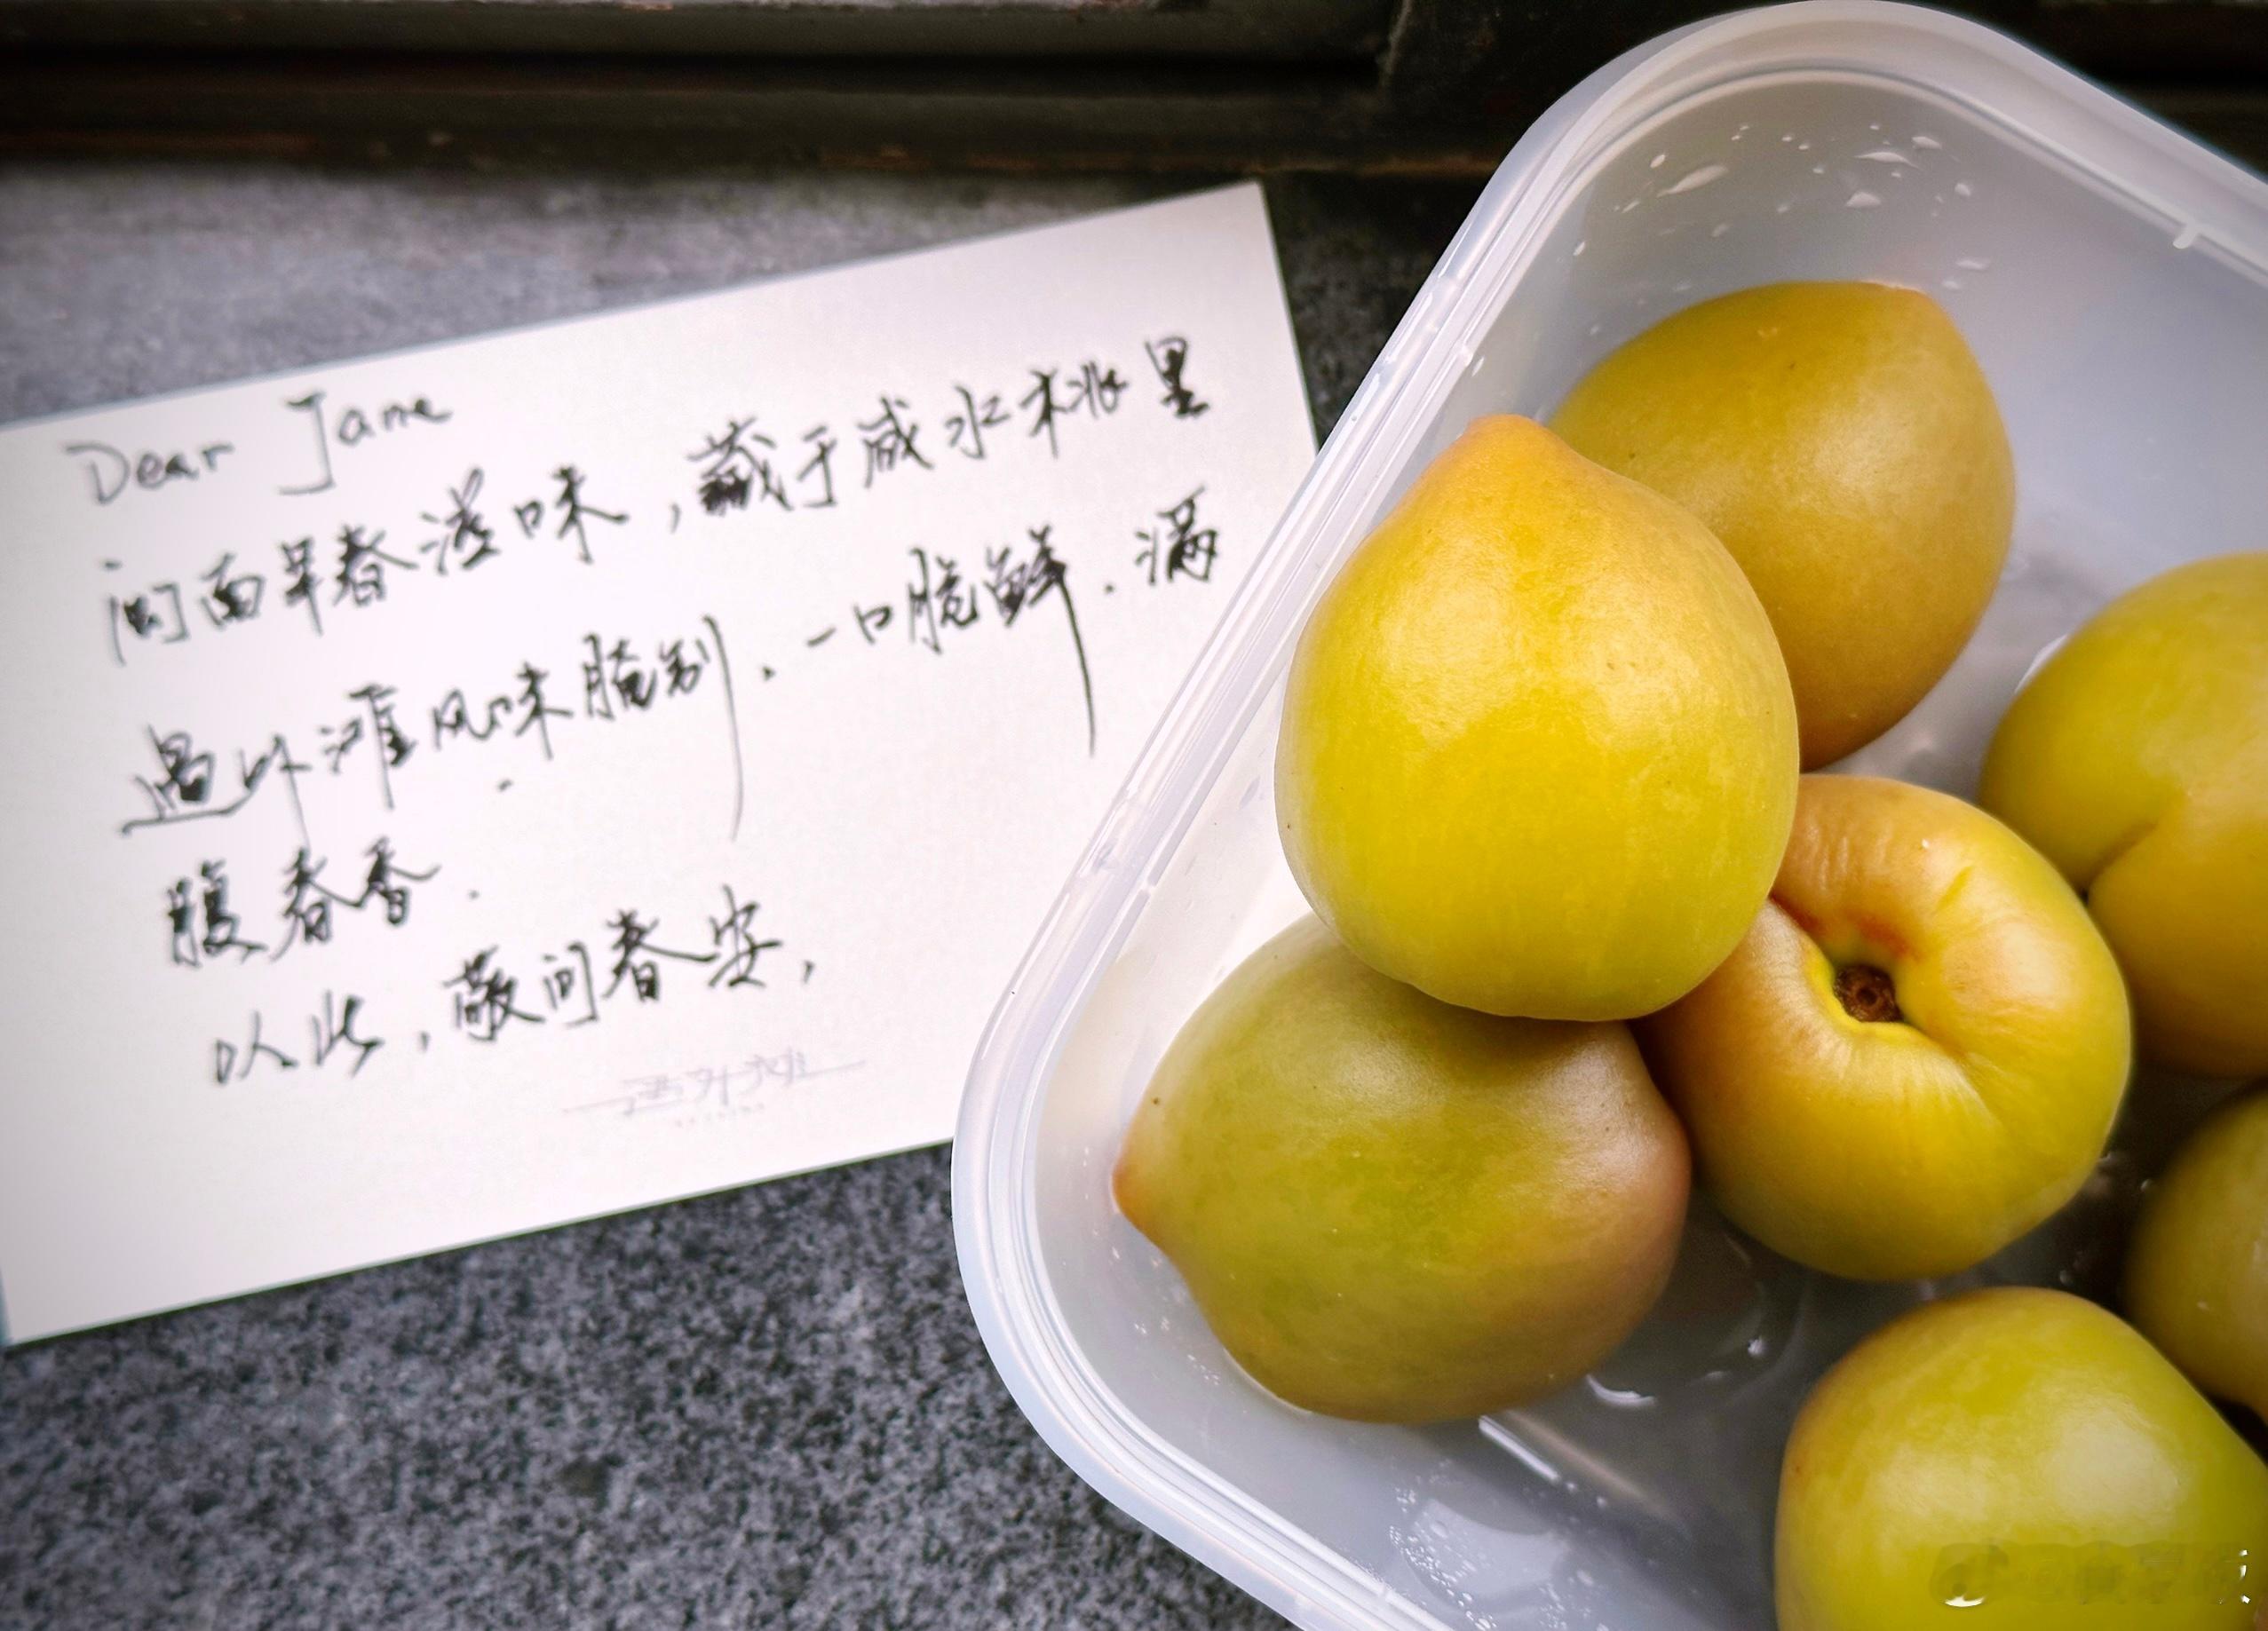 Dear Jane
闽南早春滋味，藏于咸水桃里
遇外滩风味腌制．一口脆鲜．满
腹春香．
以此，敬问春安，